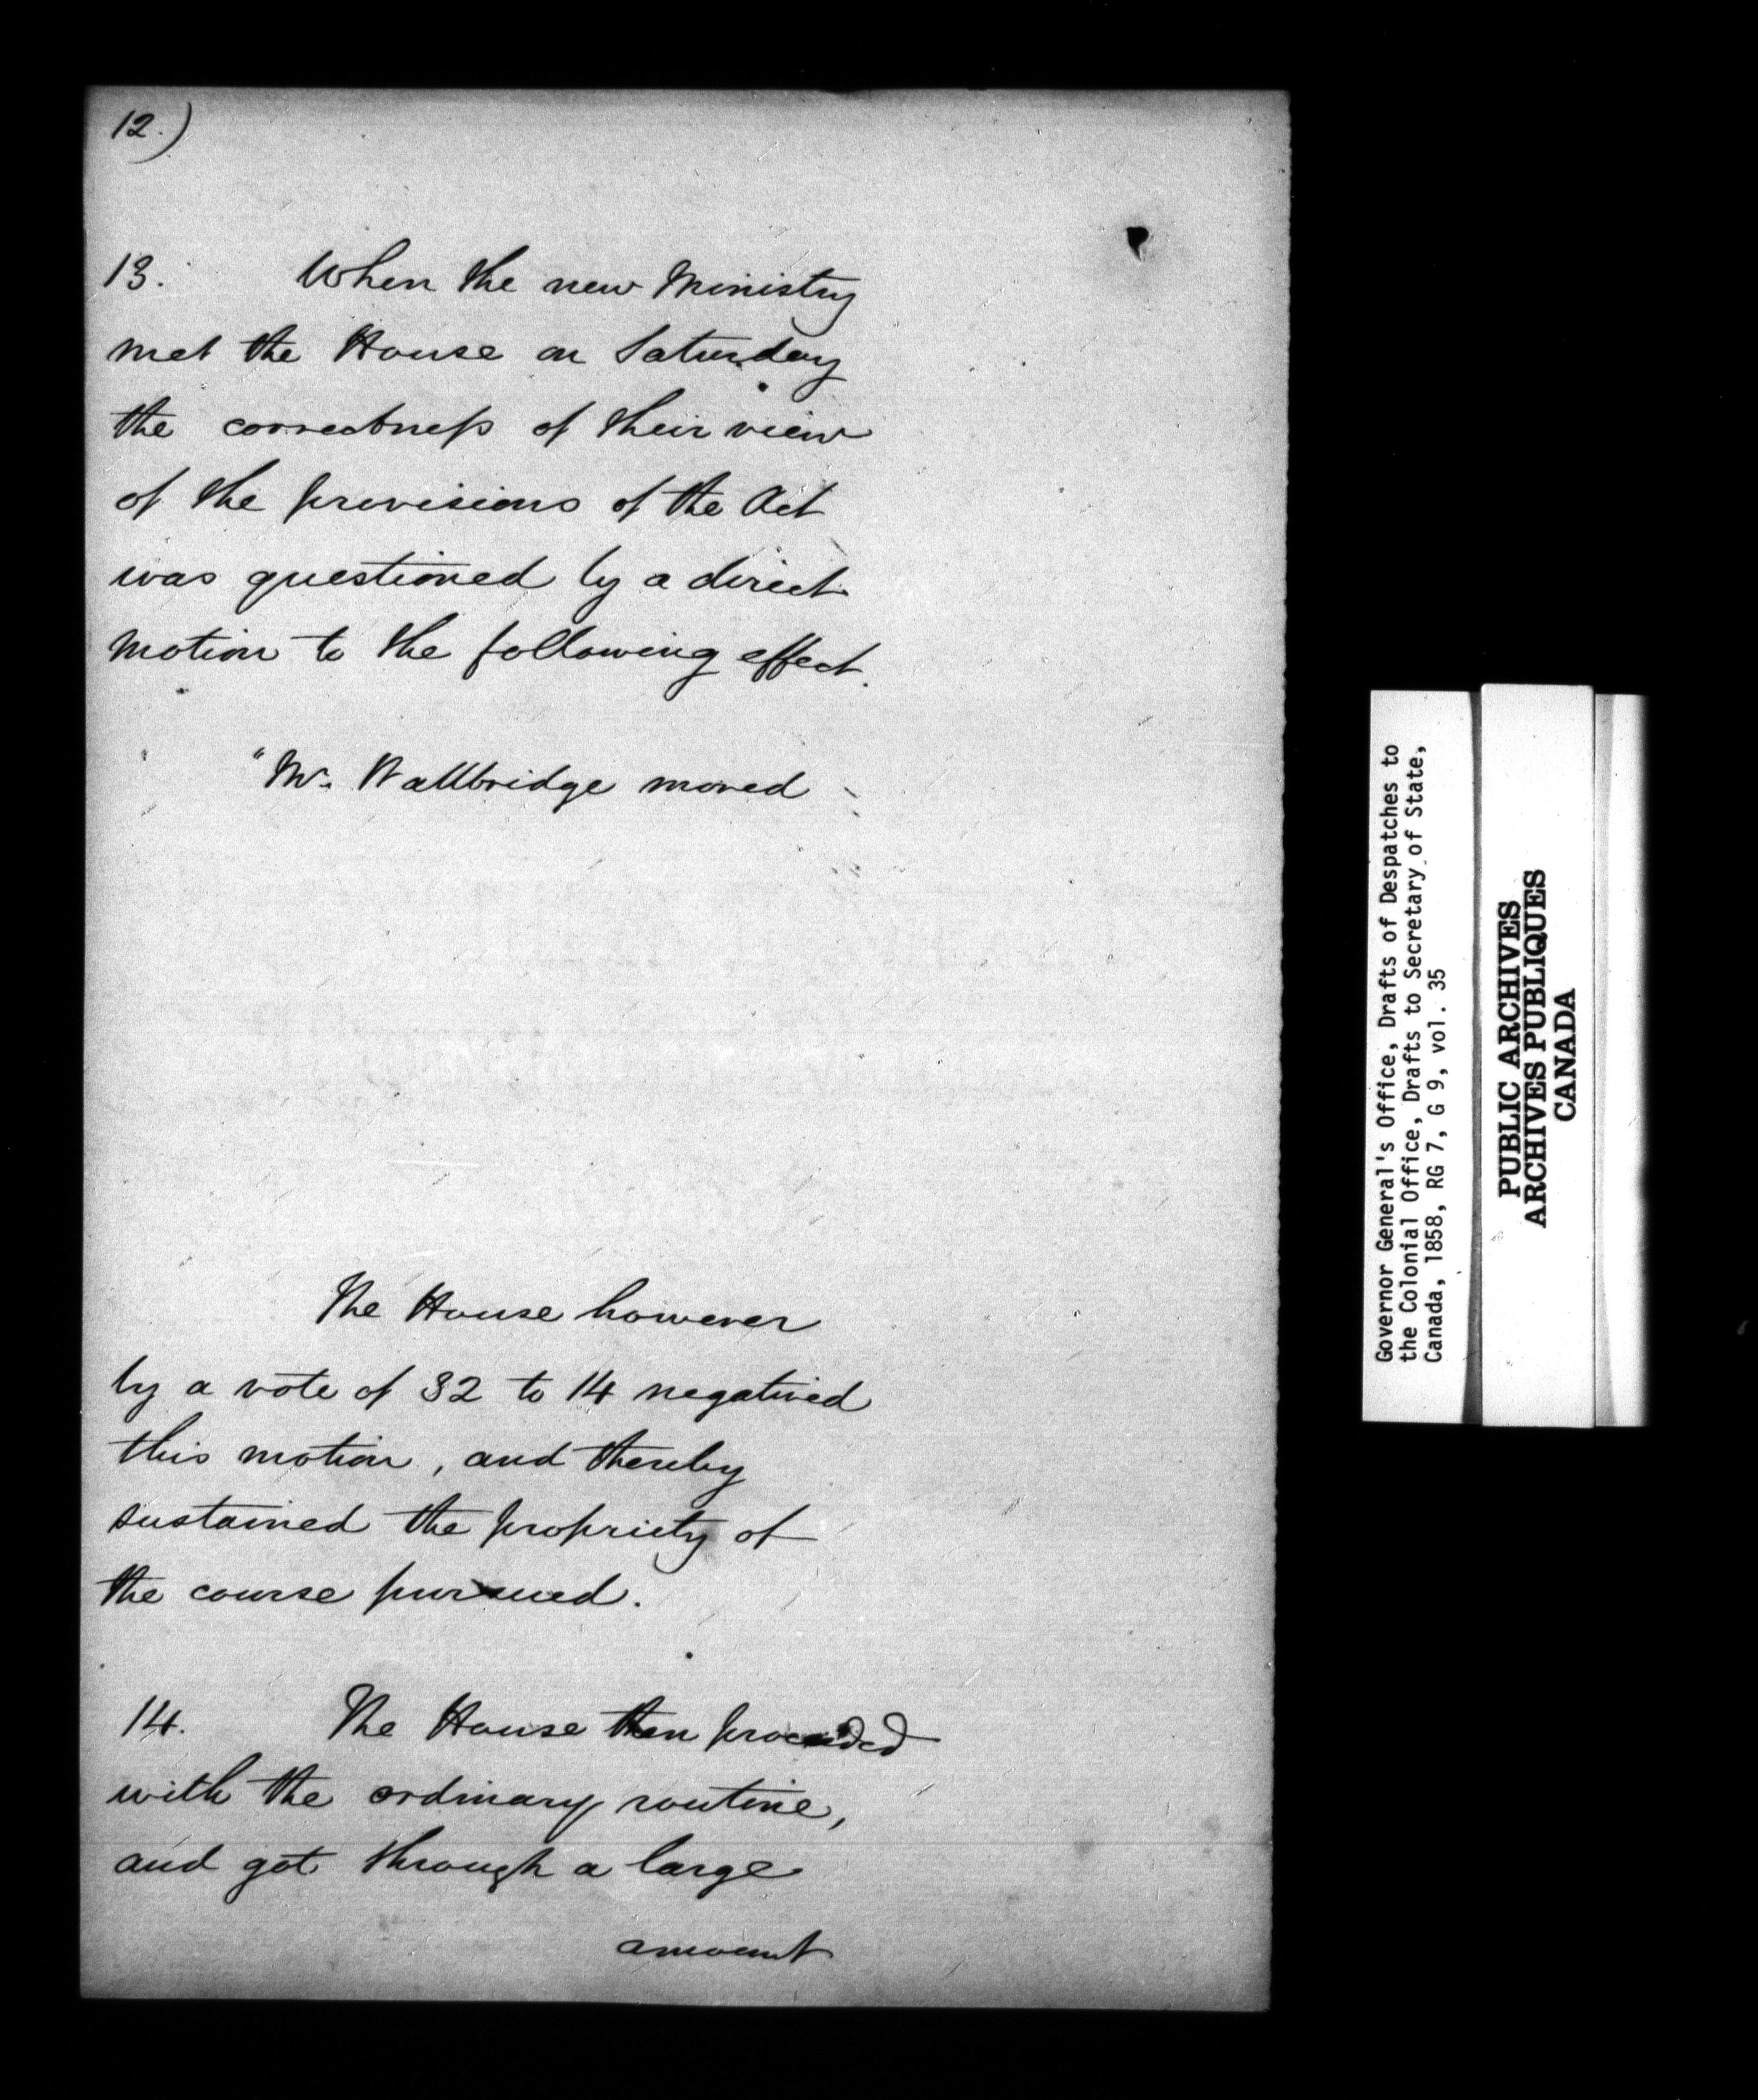 12.)
13. When the new Ministry
met the House on Saturday
the correctness of their view
of the provisions of the Act
was questioned by a direct
motion to the following effect.
"Mr. Wallbridge moved
The House however
by a vote of 32 to 14 negatived
this motion, and thereby
sustained the propriety of
the course pursued.
14. The House then proceeded
with the ordinary routine,
and got through a large
amount
Governor General's Office, Drafts of Despatches to
the Colonial Office, Drafts to Secretary of State,
Canada, 1858, RG 7, G 9, vol. 35
PUBLIC ARCHIVES
ARCHIVES PUBLIQUES
CANADA